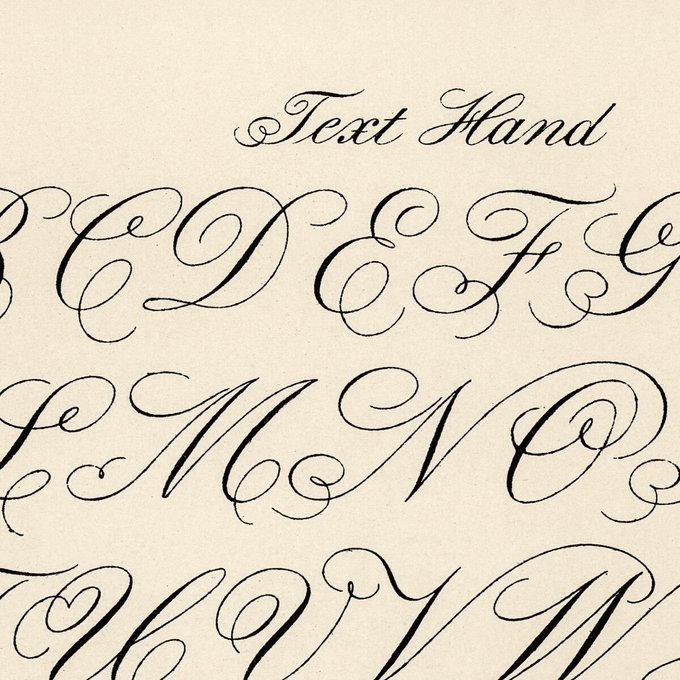 Text Hand
B C D E F G
L M N O
T U V V W